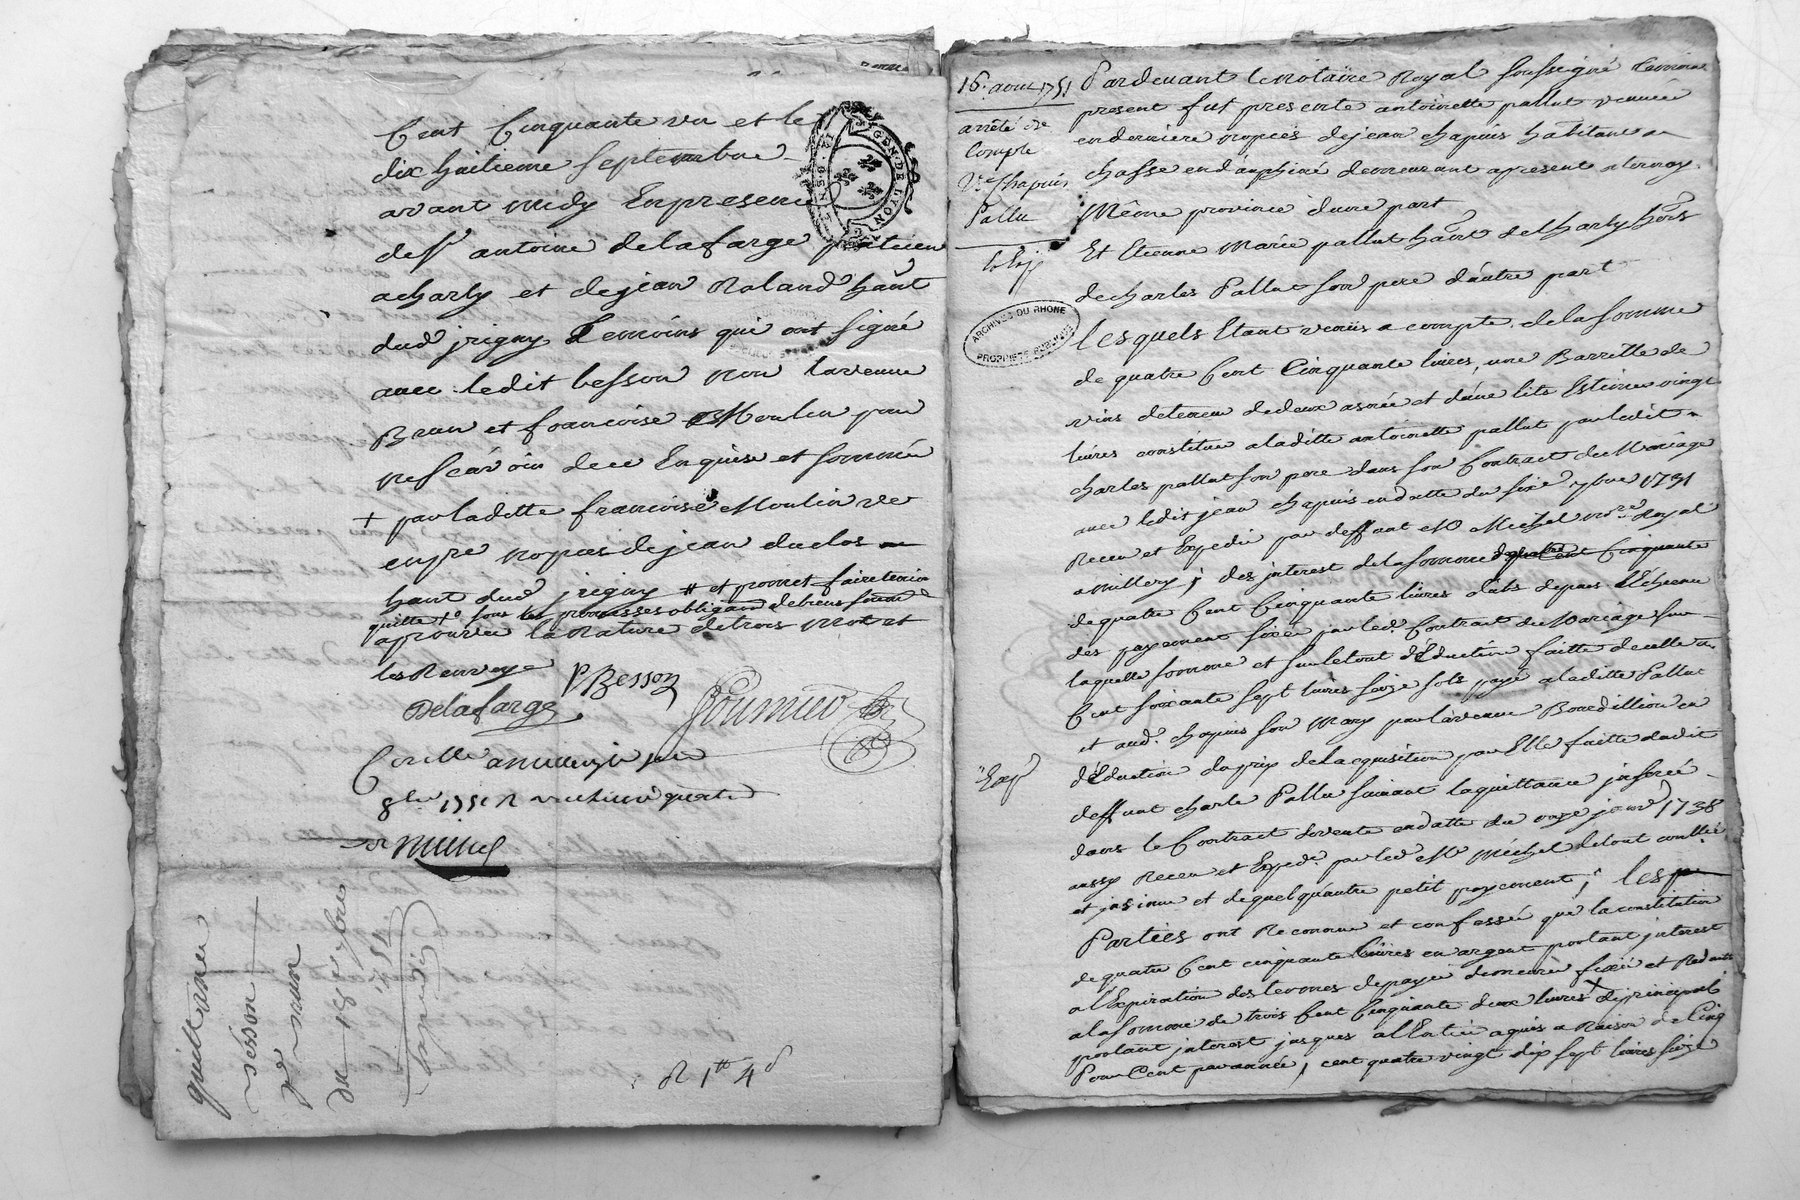 Cent Cinquante un et le
dix huitieme septembre
avant midy En presence
de sr antoine delafarge praticien
a charly et de jean Roland hant
dud jrigny Temoins qui ont signé
avec ledit besson non la veuve
Brun et francoise Moulin pour
ne scavoir de ce Enquise et sommée
+ par laditte francoise Moulin ve
en pre nopces de jean duclos
hant dud jrigny # et promet faire tenir
quitte so sous les promesses obligaon de biens soumon
aprouvée la Rature de trois mot et
les Renvoye
Delafarge
PBesson
fournier
Conllé a millery le
8bre 1751 R
Michel
quittance
Besson
ve Brun
du 18e 7bre
1751
Expédié
R 1tt 4d
GEN·DE LYON
16. aoust 1751
arrêté de
Compte
Ve Chapuis
Pallu
Exp
ARCHIVES DU RHONE
PROPRIÉTÉ PUBLIQUE
Exp
Pardevant le Notaire Royal soussigné temoins
present fut presente antoinette pallut veuve
en derniere nopces de jean chapuis habitant a
chasse en dauphiné demeurant a present a ternay
Même province d'une part
Et Etienne Marie pallut hant de Charly hoirs
de charles Pallut son pere d'autre part
lesquels Etant venus a compte de la somme
de quatre Cent Cinquante livres, une Barrille de
vins de teneur de deux asnée et d'une lits Estimés vingt
livres constitué a laditte antoinette pallut par ledit
charles pallut son pere dans son Contract de Mariage
avec ledit jean chapuis en datte du six 7bre 1731
Receu et Expedié par deffunt Me Michel nore Royal
a millery; des jnterest de la somme de quatre cent Cinquante
de quatre Cent Cinquante livres dubs depuis l'Echeance
des payement fixée par led. Contract de Mariage sur
laquelle somme et sur le tout déduction faitte de celle de
Cent soixante sept livres seize sols payé a laditte Pallut
et aud. chapuis son Mary par la veuve Bonedillion en
déduction du prix de l'acquisition par Elle faitte dudit
deffunt charle Pallu suivant la quittance jnserée
dans le Contract de vente en datte du onze 1738
aussy Receu et Expedé par led Me Michel de tout contllé
et jnsinué et de quelqu'autre petit payement; les
Parties ont Reconnu et confessée que la constitution
de quatre Cent cinquante livres en argent portant jnterest
a l'Expiration des termes de payer demeure fixée et Reduite
a la somme de trois Cent Cinquante deux livres de principal
portant jnterest jusques a l'Entier aquis a Raison de Cinq
Pour Cent par année, cent quatre vingt dix sept livres seize